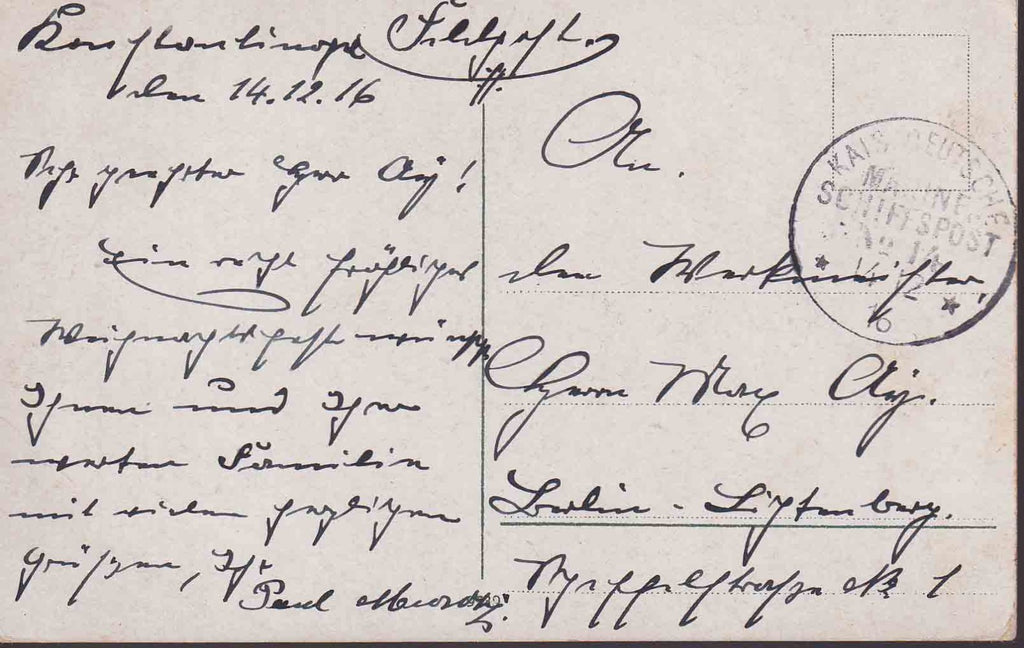 Konstantinopel Feldpost.
den 14.12.16
Sehr geehrter Herr Ay!
Ein recht fröhliches
Weihnachtsfest wünscht
Ihnen und Ihrer
werten Familie
mit vielen herzlichen
Grüßen, Ihr
Paul
An
den Werkmeister,
Herrn Max Ay.
Berlin - Lichtenberg.
straße No 1
KAIS. DEUTSCHE
MARINE-
SCHIFFSPOST
No 14
14 12
16